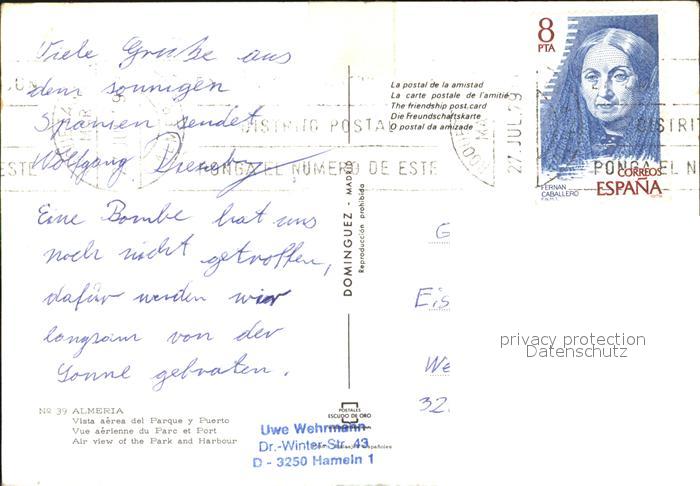 Viele Grüße aus
dem sonnigen
Spanien sendet
Wolfgang
Eine Bombe hat uns
noch nicht getroffen,
dafür werden wir
langsam von der
Sonne gebraten.
Nº 39 ALMERIA
Vista aérea del Parque y Puerto
Vue aérienne du Parc et Port
Air view of the Park and Harbour
DOMINGUEZ - MADRID
Reproducción prohibida
La postal de la amistad
La carte postale de l'amitié
The friendship post card
Die Freundschaftskarte
O postal da amizade
8
PTA
CORREOS
ESPAÑA
FERNAN
CABALLERO
F.N.M.T.
27 JUL. 79
DISTRITO POSTAL
PONGA EL NUMERO DE ESTE
ESTE
DISTRIT
PONGA EL N
G
Eis
We
32.
privacy protection
Datenschutz
POSTALES
ESCUDO DE ORO
Uwe Wehrmann
Dr.-Winter-Str. 43
D - 3250 Hameln 1